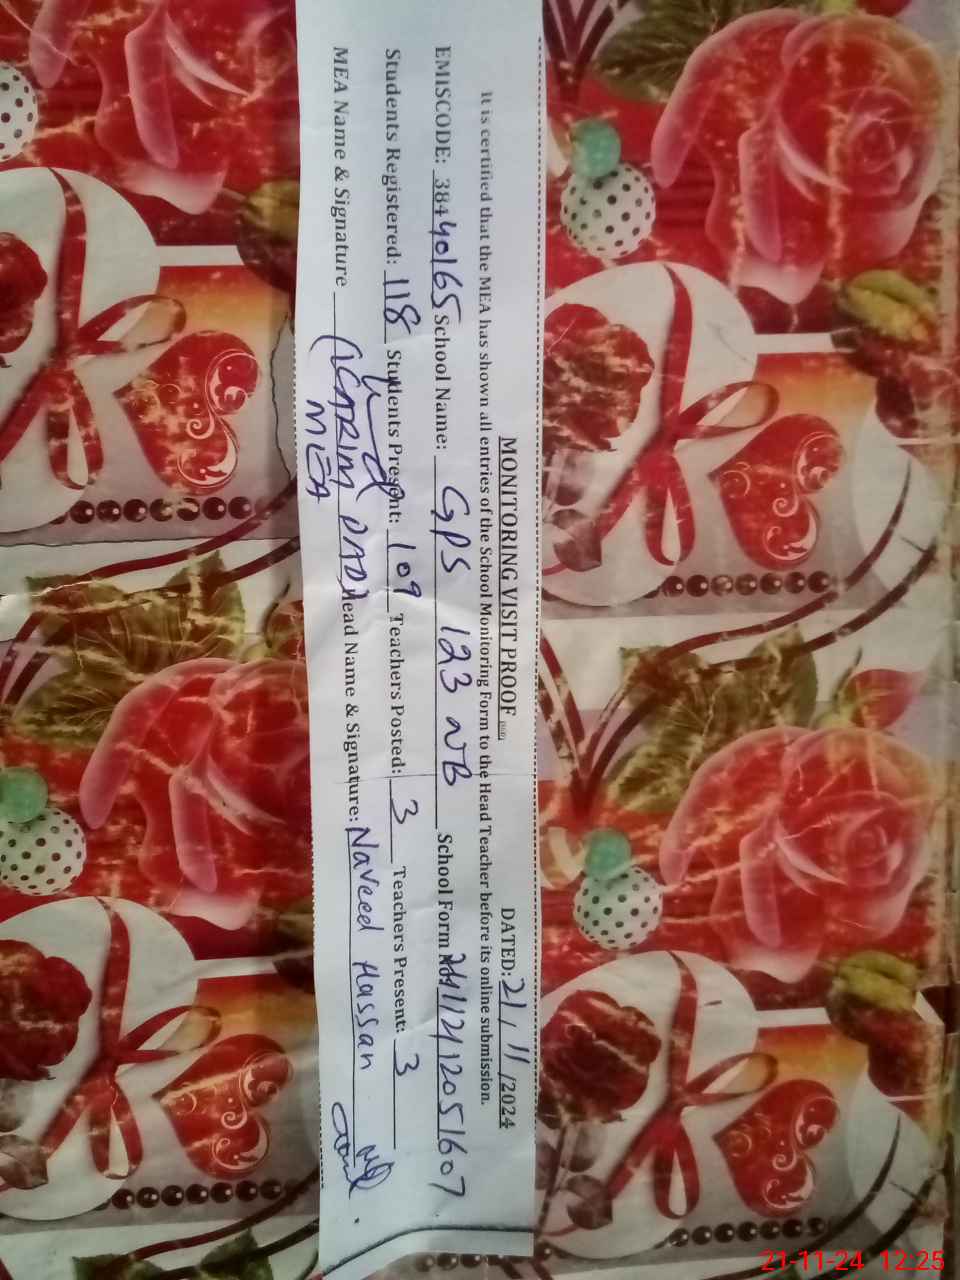 MONITORING VISIT PROOF DATED: 21/11/2024
It is certified that the MEA has shown all entries of the School Monitoring Form to the Head Teacher before its online submission.
EMISCODE: 38440165 School Name: GPS 123 NB School Form 2411212051607
Students Registered: 118 Students Present: 109 Teachers Posted: 3 Teachers Present: 3
MEA Name & Signature (KARIM DAD) Head Name & Signature: Naveed Hassan
MEA
21-11-24 12:25